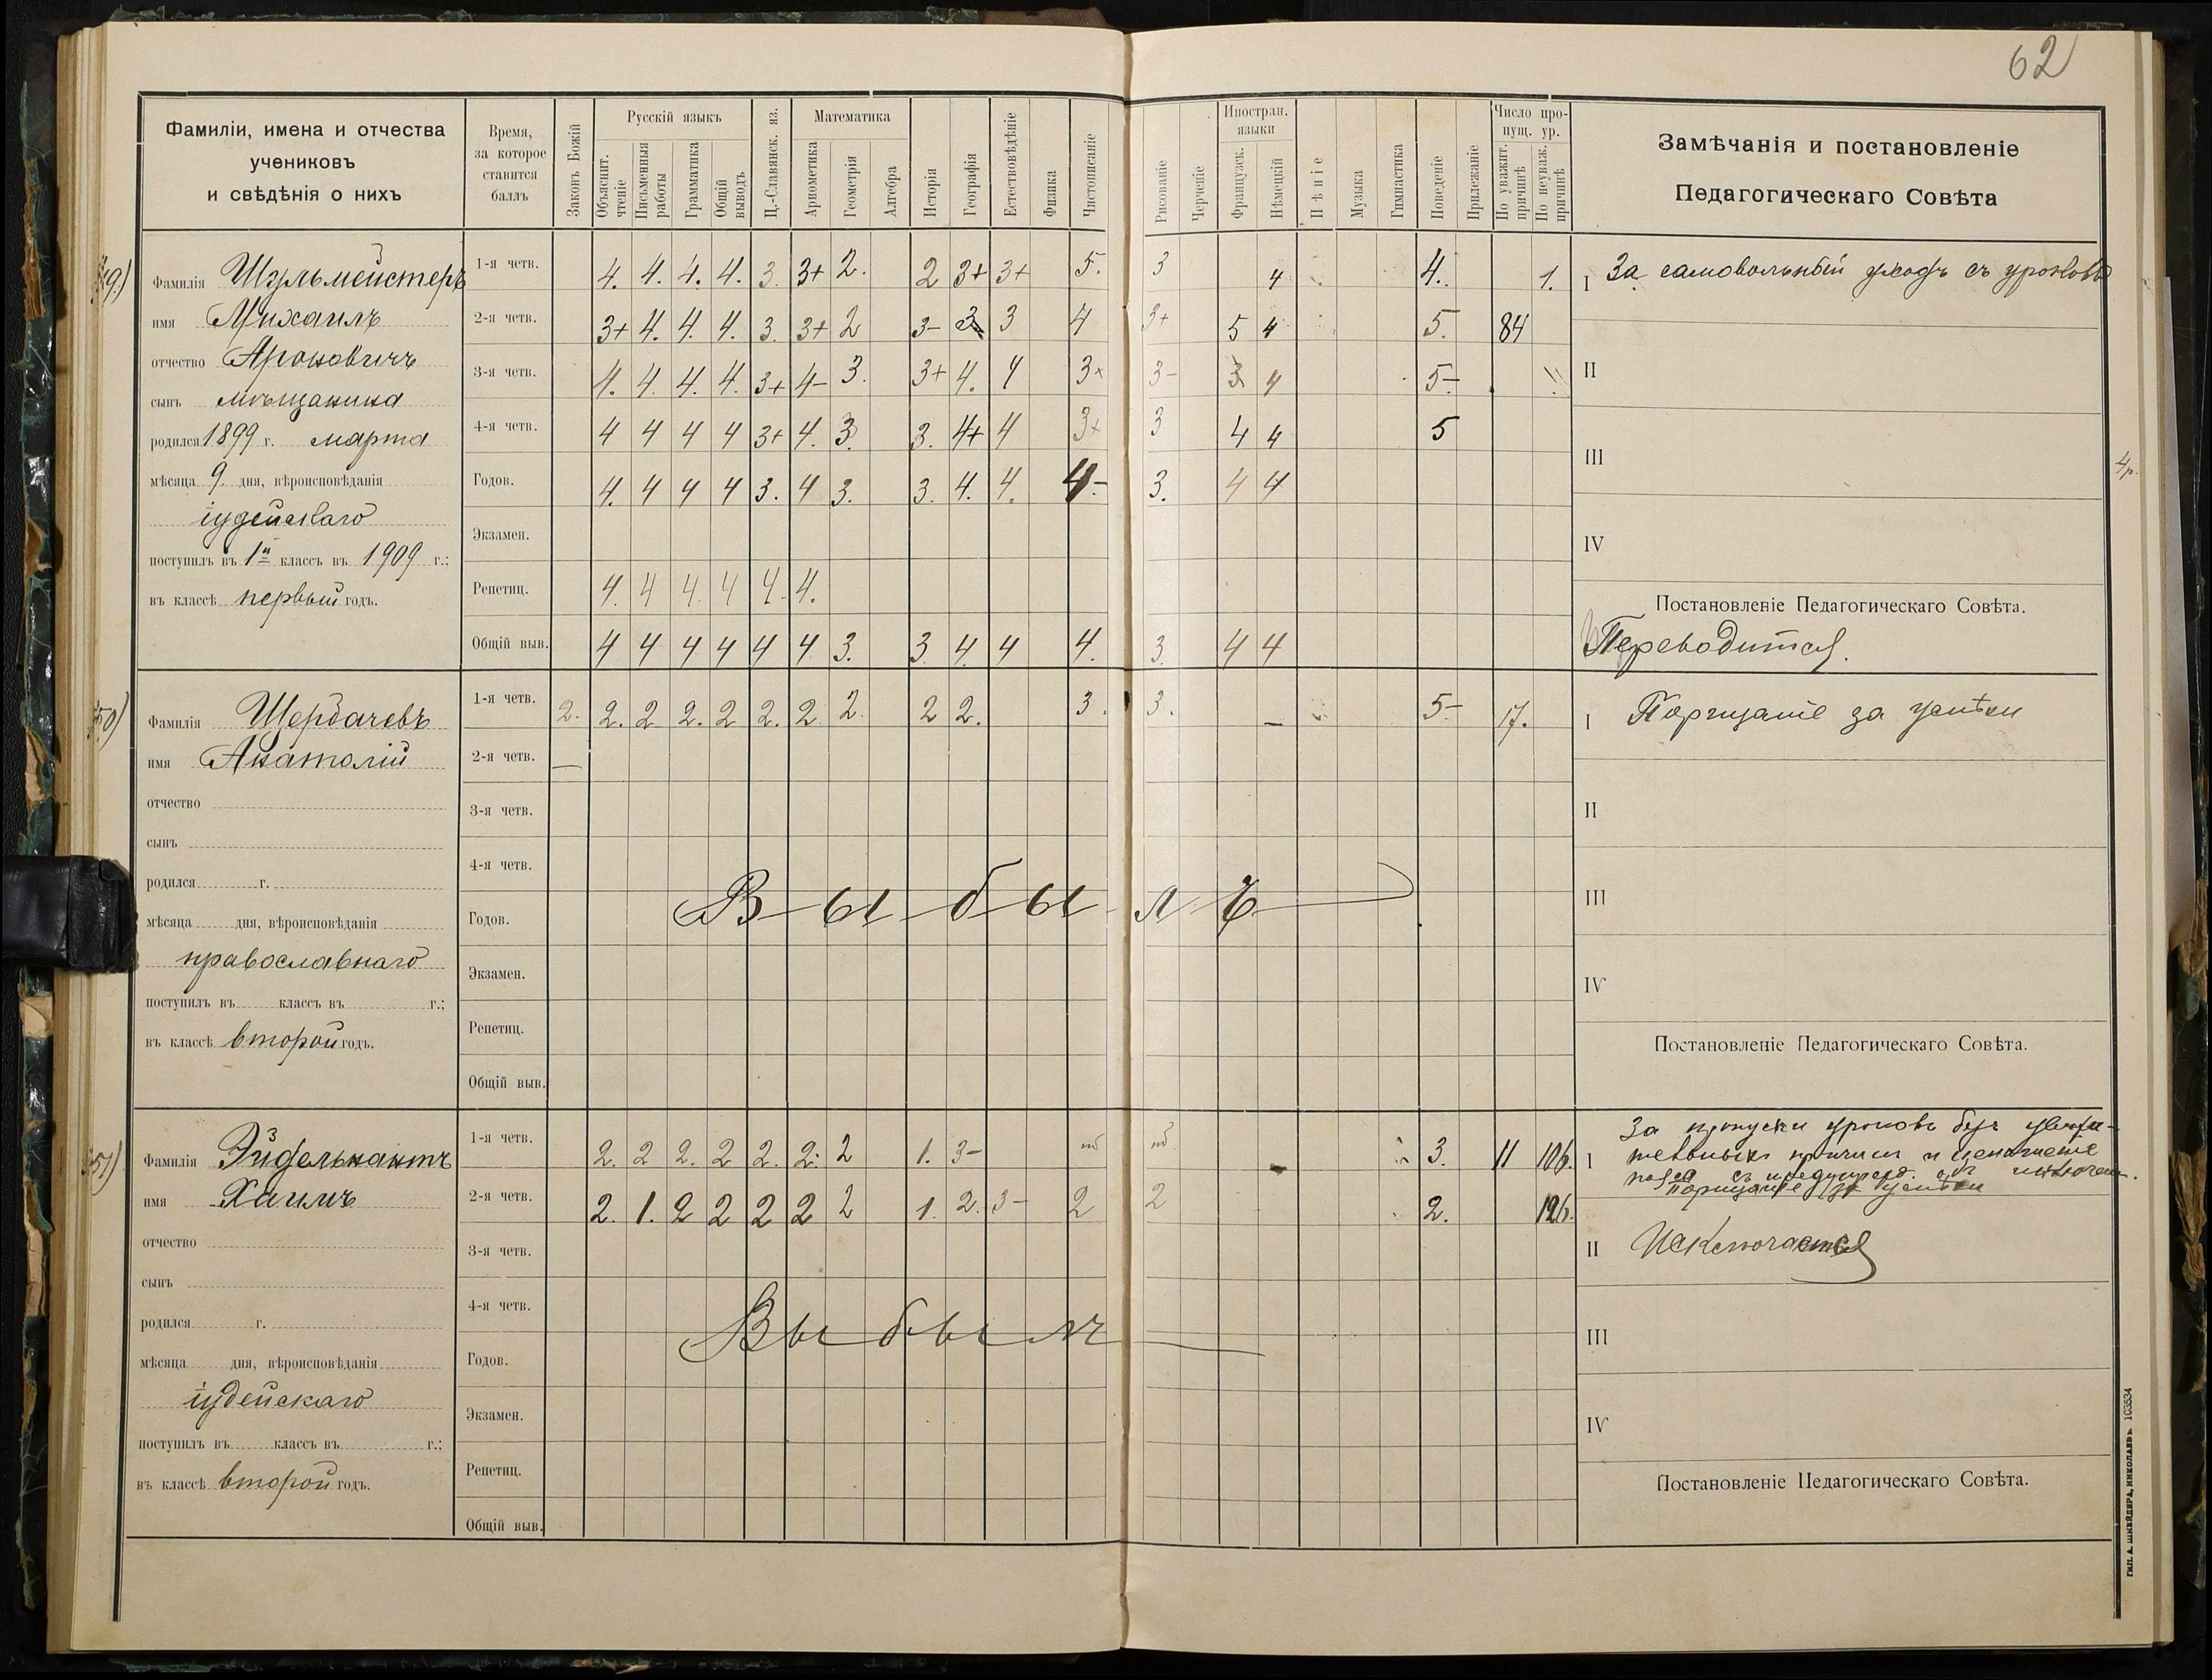 62
Фамиліи, имена и отчества
учениковъ
и свѣдѣнія о нихъ
Время,
за которое
ставится
баллъ
Законъ Божій
Русскій языкъ
Объяснит. чтеніе
Письменныя работы
Грамматика
Общій выводъ
Ц.-Славянск. яз.
Математика
Ариѳметика
Геометрія
Алгебра
Исторія
Географія
Естествовѣдѣніе
Физика
Чистописаніе
Рисованіе
Черченіе
Иностран. языки
Французск.
Нѣмецкій
Пѣніе
Музыка
Гимнастика
Поведеніе
Прилежаніе
Число пропущ. ур.
По уважит. причинѣ
По неуваж. причинѣ
Замѣчанія и постановленіе
Педагогическаго Совѣта
49)
Фамилія Шульмейстеръ
имя Михаилъ
отчество Ароновичъ
сынъ мѣщанина
родился 1899 г. марта
мѣсяца 9 дня, вѣроисповѣданія
іудейскаго
поступилъ въ 1й классъ въ 1909 г.;
въ классѣ первый годъ.
1-я четв. 4. 4. 4. 4. 3. 3+ 2. 2 3+ 3+ 5. 3 4 4. 1.
2-я четв. 3+ 4. 4. 4. 3. 3+ 2 3- 3 3 4 3+ 5 4 5. 84
3-я четв. 4. 4. 4. 4. 3+ 4- 3. 3+ 4. 4 3+ 3- 3 4 5-
4-я четв. 4 4 4 4 3+ 4. 3. 3. 4+ 4 3+ 3 4 4 5
Годов. 4. 4 4 4 3. 4 3. 3. 4. 4. 4- 3. 4 4
Экзамен.
Репетиц. 4. 4 4. 4 4. 4.
Общій выв. 4 4 4 4 4 4 3. 3 4 4 4. 3. 4 4
I За самовольный уходъ съ уроковъ
II
III
4р.
IV
Постановленіе Педагогическаго Совѣта.
Переводится.
50)
Фамилія Щербачевъ
имя Анатолій
отчество
сынъ
родился г.
мѣсяца дня, вѣроисповѣданія
православнаго
поступилъ въ классъ въ г.;
въ классѣ второй годъ.
1-я четв. 2. 2. 2 2. 2 2. 2 2. 2 2. 3. 3. - 5- 17.
2-я четв. —
3-я четв.
4-я четв.
Выбылъ
Годов.
Экзамен.
Репетиц.
Общій выв.
I Порицаніе за успѣхи
II
III
IV
Постановленіе Педагогическаго Совѣта.
51)
Фамилія Эйдельнантъ
имя Хаимъ
отчество
сынъ
родился г.
мѣсяца дня, вѣроисповѣданія
іудейскаго
поступилъ въ классъ въ г.;
въ классѣ второй годъ.
1-я четв. 2. 2 2. 2 2. 2. 2 1. 3- нб нб - 3. 11 106.
2-я четв. 2. 1. 2 2 2 2 2 1. 2. 3- 2 2 2. 126.
3-я четв.
4-я четв.
Выбылъ
Годов.
Экзамен.
Репетиц.
Общій выв.
За пропуски уроковъ безъ уважи-
I тельныхъ причинъ и
съ предупрежд. объ исключен.
порицаніе за успѣхи
II Исключается
III
IV
Постановленіе Педагогическаго Совѣта.
ТИП. А. ШНЕЙДЕРА, НИКОЛАЕВЪ. 103534